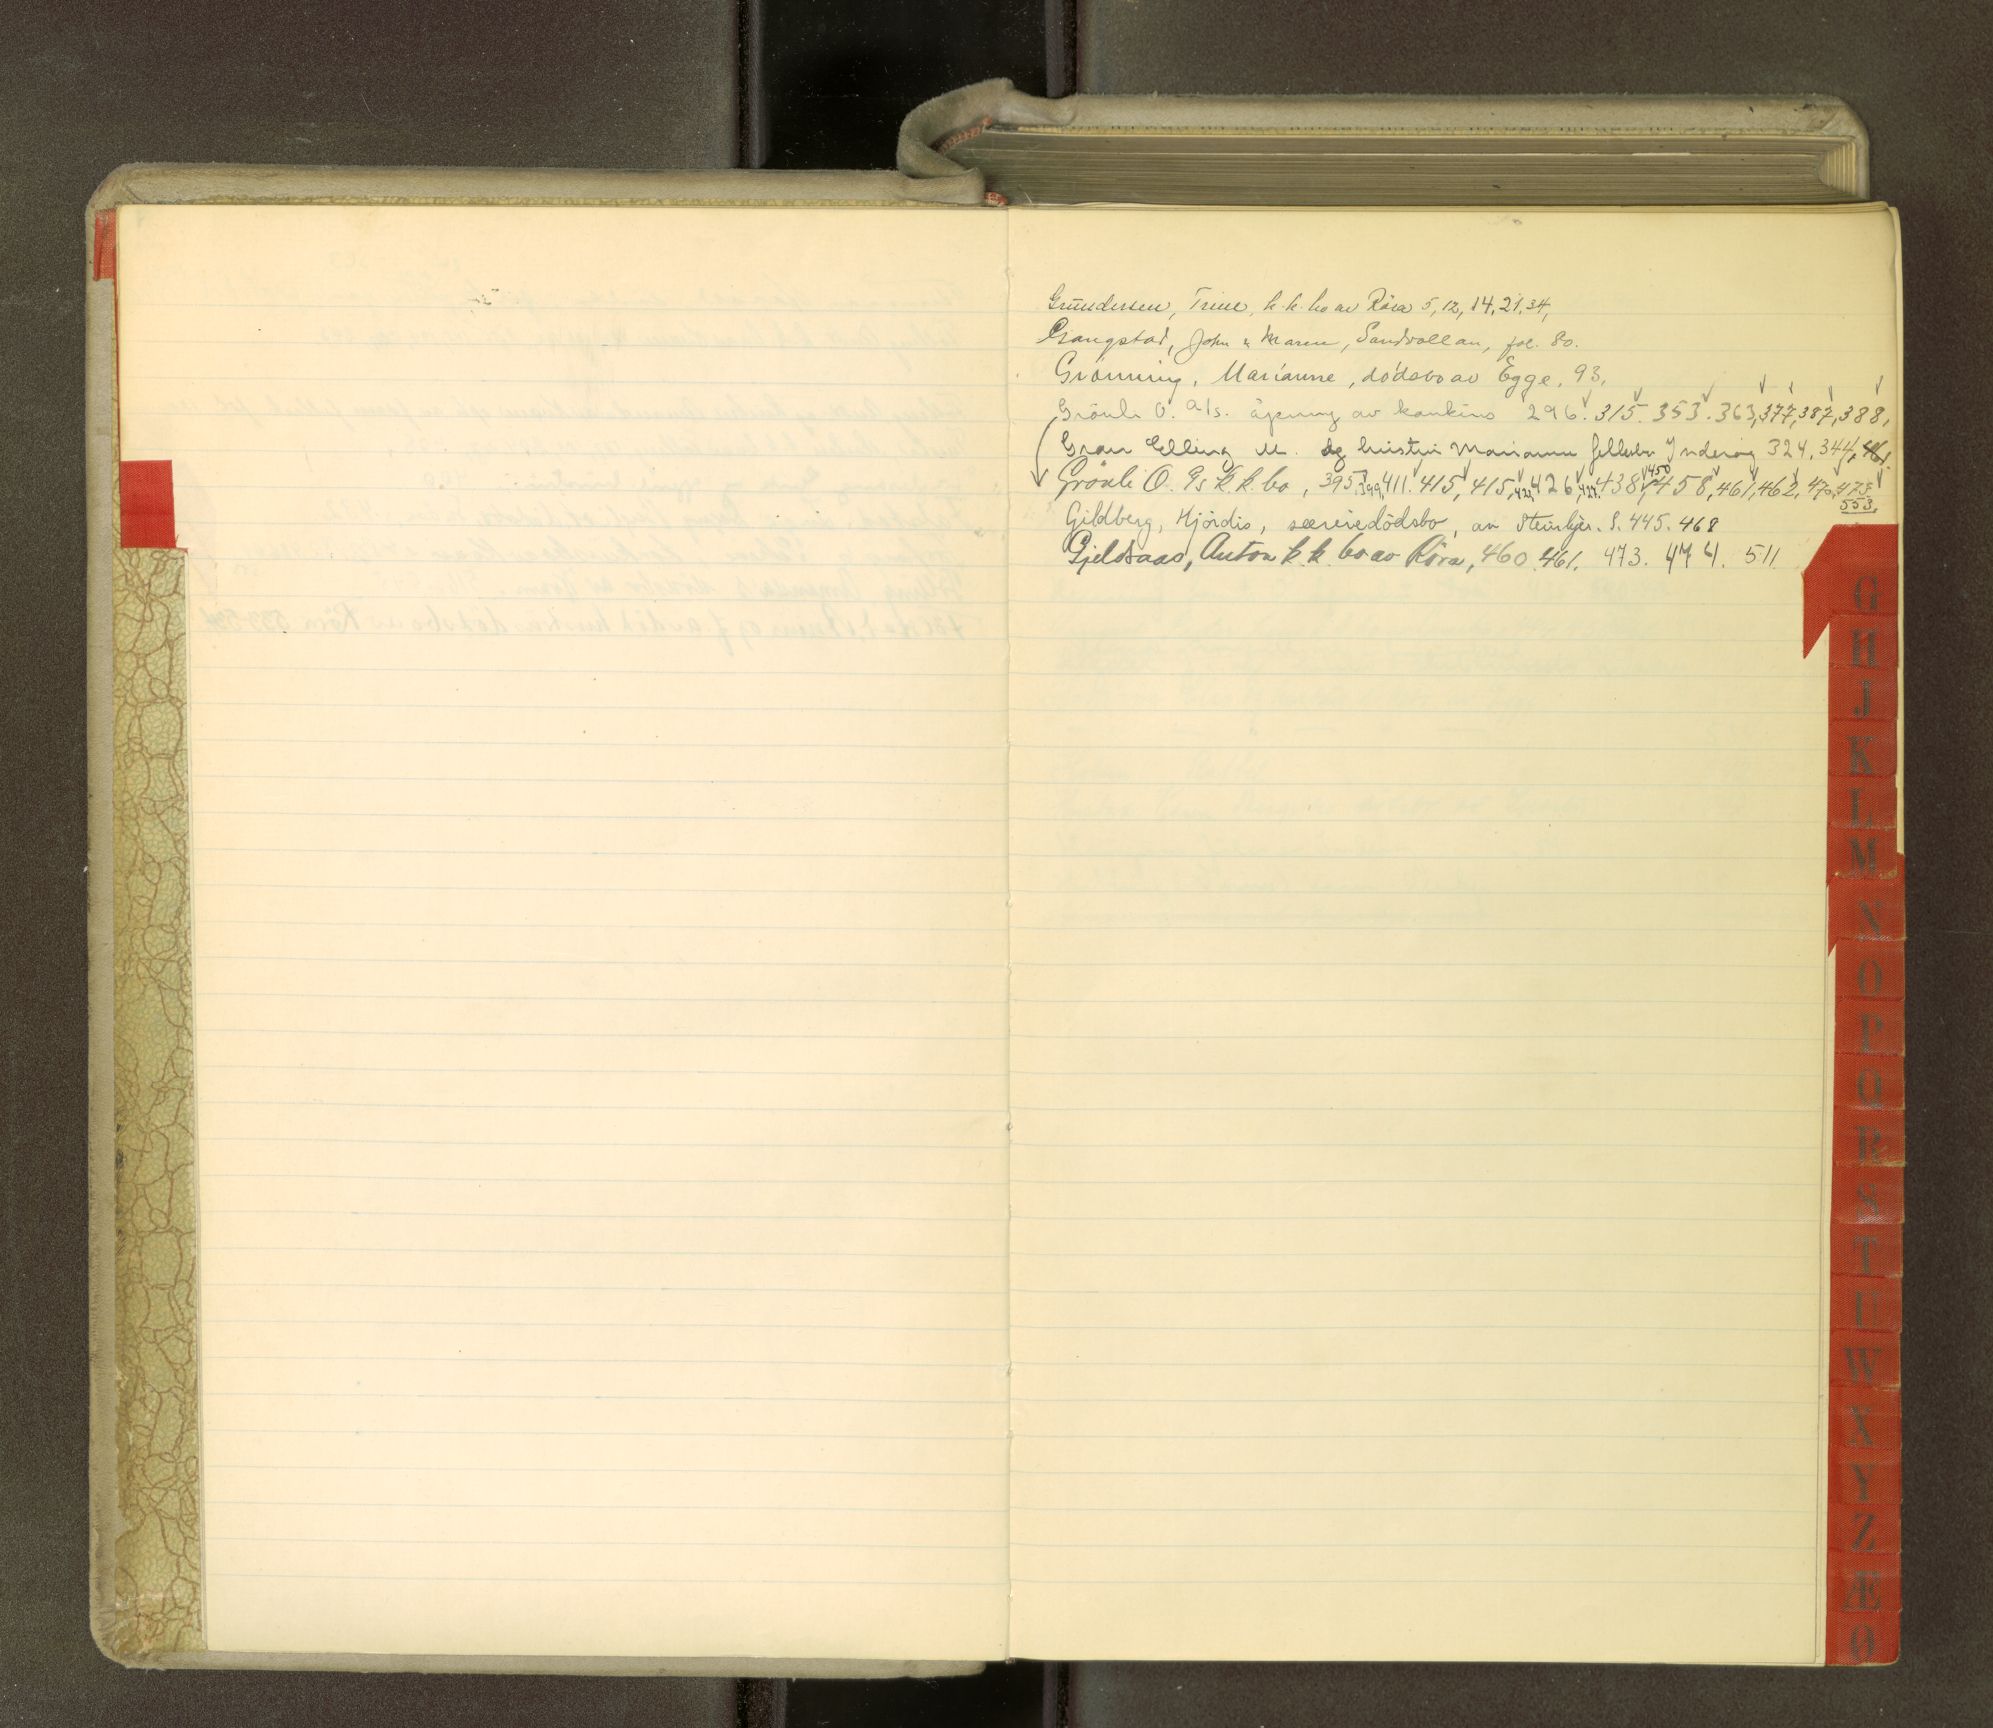 Gundersen, Trine, k.k. bo av Röra 5, 12, 14, 21, 34,
Gangstad, John & Maren, Sandvollan, fol. 80.
Grönning, Marianne, dödsbo av Egge, 93,
Grönli O. A/s. åpning av konkurs 296. 315. 353. 363, 377, 387, 388,
Gran Elling M. og hustru Marianne fellesbo Inderöy 324, 344,
Grönli O. k.k. bo, 395, 399, 411. 415, 415, 423, 426, 427, 438, 450 458, 461, 462, 470, 473
553.
Gildberg, Hjördis, særeiedödsbo, av Steinkjer. S. 445. 468
Gjeldsaas, Anton k.k. bo av Röra, 460. 461. 473. 474. 511
G
H
J
K
L
M
N
O
P
Q
R
S
T
U
W
X
Y
Z
Æ
Ø